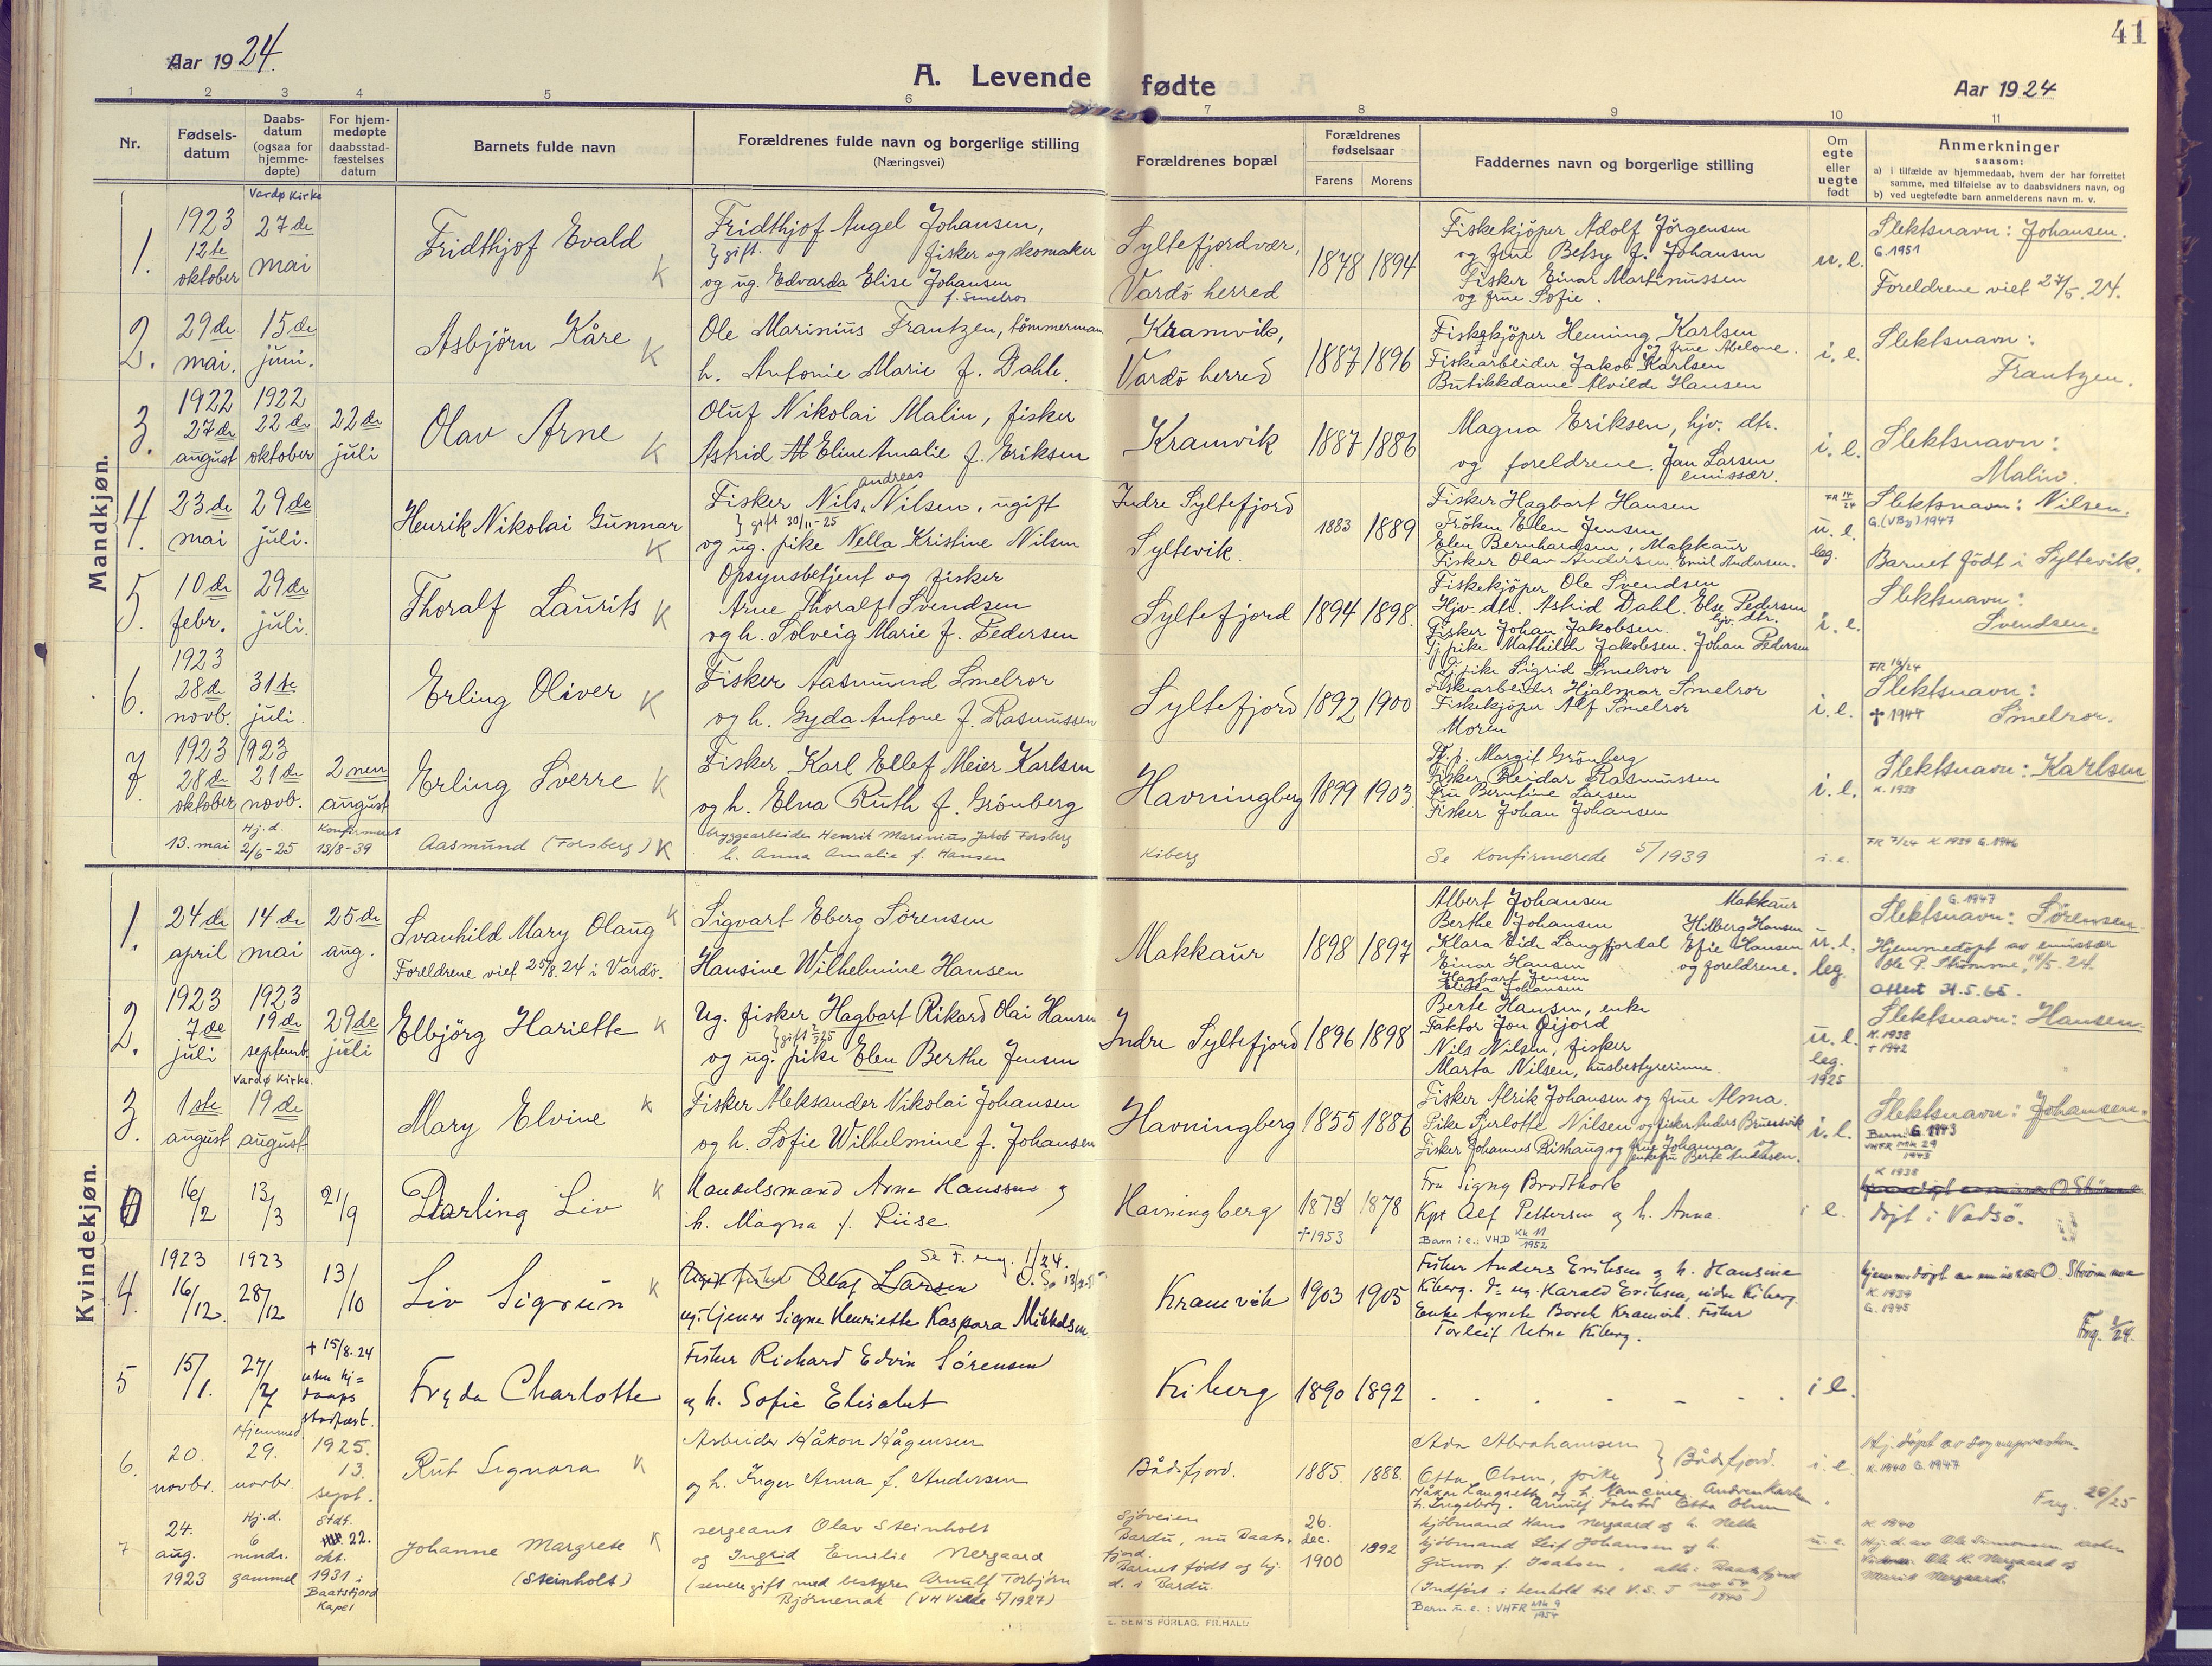 41
Aar 1924.
A. Levende fødte
Aar 1924
1 2 3 4 5 6 7 8 9 10 11
Nr.
Fødsels-
datum
Daabs-
datum
(ogsaa for
hjemme-
døpte)
For hjem-
medøpte
daabsstad-
fæstelses
datum
Barnets fulde navn
Forældrenes fulde navn og borgerlige stilling
(Næringsvei)
Forældrenes bopæl
Forældrenes
fødselsaar
Farens Morens
Faddernes navn og borgerlige stilling
Om
egte
eller
uegte
født
Anmerkninger
saasom:
a) i tilfælde av hjemmedaab, hvem der har forrettet
samme, med tilføielse av to daabsvidners navn, og
b) ved uegtefødte barn anmelderens navn m. v.
Mandkjøn.
Vardø Kirke
1.
1923
12te
oktober
27de
mai
Fridthjof Evald
K
Fridthjof Angel Johansen,
} gift. fisker og skomaker
og ug. Edvarda Elise Johansen
f. Smelror
Syltefjordvær,
Vardö herred
1878 1894
Fiskekjöper Adolf Jörgensen
og frue Betsy f. Johansen
Fisker Einar Martinussen
og frue Sofie.
u. e.
Slektsnavn: Johansen.
G. 1951
Foreldrene viet 27/5. 24.
2.
29de
mai.
15de
juni.
Asbjörn Kåre
K
Ole Marinius Frantzen, tömmerman
h. Antonie Marie f. Dahle.
Kramvik,
Vardö herred
1887 1896
Fiskekjöper Heming Karlsen
og frue Abelone.
Fiskearbeider Jakob Karlsen
Butikkdame Alvilde Hansen
i. e.
Slektsnavn:
Frantzen.
3.
1922
27de
august
1922
22de
oktober
22de
juli
Olav Arne
K
Oluf Nikolai Malin, fisker
Astrid Eline Amalie f. Eriksen
Kramvik
1887 1886
Magna Eriksen, hjv. dtr.
og foreldrene. Jan Larsen
emissær.
i. e.
Slektsnavn:
Malin.
4.
23de
mai
29de
juli.
Henrik Nikolai Gunnar
K
Andreas
Fisker Nils Nilsen, ugift
} gift 30/11-25
og ug. pike Nella Kristine Nilsen
Indre Syltefjord
Syltevik.
1883 1889
Fisker Hagbart Hansen
Fröken Elen Jensen
Elen Bernhardsen, Makkaur
Fisker Olav Andersen. Emil Andersen.
u. e.
leg.
Slektsnavn: Nilsen.
G. (VBy) 1947
Barnet födt i Syltevik.
5.
10de
febr.
29de
juli.
Thoralf Laurits
K
Opsynsbetjent og fisker
Arne Thoralf Svendsen
og h. Solveig Marie f. Pedersen
Syltefjord
1894 1898.
Fiskekjöper Ole Svendsen
Hjv. dtr. Astrid Dahl. Else Pedersen
hjv. dtr.
Fisker Johan Jakobsen.
Tj. pike Mathilde Jakobsen. Johan Pedersen
i. e.
Slektsnavn:
Svendsen.
6.
1923
28de
novb.
31te
juli.
Erling Oliver
K
Fisker Aasmund Smelror
og h. Gyda Antone f. Rasmussen
Syltefjord
1892 1900
Tj. pike Sigrid Smelror
Fiskearbeider Hjalmar Smelror
Fiskekjöper Alf Smelror
Moren
i. e.
Slektsnavn:
✝ 1944 Smelror.
7.
1923
28de
oktober
1923
21de
novb.
2nen
august
Erling Sverre
K
Fisker Karl Ellef Meier Karlsen
og h. Elna Ruth f. Grönberg
Havningberg
1899 1903
Margit Grönberg
Fisker Reidar Rasmussen
Fru Berntine Larsen
Fisker Johan Johansen
i. e.
Slektsnavn: Karlsen
K. 1938
13. mai
Hj. d.
2/6-25
Konfirmeret
13/8-39
Aasmund (Forsberg)
K
bryggearbeider Henrik Marinius Jakob Forsberg
h. Anna Amalie f. Hansen
Kiberg
Se Konfirmerede 5/1939
i. e.
FR 7/24 K. 1939 G. 1946
Kvindekjøn.
1.
24de
april
14de
mai
25de
aug.
Svanhild Mary Olaug
K
Foreldrene viet 25/8. 24 i Vardö.
Sigvart Eberg Sörensen
Hansine Wilhelmine Hansen
Makkaur
1898 1897
Albert Johansen Makkaur
Berthe Johansen Hilberg Hansen
Klara Eide Langfjordal Efie Hansen
Einar Hansen og foreldrene.
Hagbart Jensen
Elisa Johansen
u. e.
leg.
G. 1947
Slektsnavn: Sörensen.
Hjemmedöpt av emissær
Ole P. Strömme, 14/5. 24.
Attest 31.5.65.
2.
1923
7de
juli
1923
19de
septemb.
29de
juli
Elbjörg Hariette
K
Ug. fisker Hagbart Rikard Olai Hansen
og ug. pike Elen Berthe Jensen
Indre Syltefjord
1896 1898
Berte Hansen, enke
Faktor Jon Oijord
Nils Nilsen, fisker
Marta Nilsen, husbestyrerinne.
u. e.
leg.
1925
Slektsnavn: Hansen.
K. 1938
+ 1942
Vardø Kirke.
3.
1ste
august
19de
august
Mary Elvine
K
Fisker Aleksander Nikolai Johansen
og h. Sofie Wilhelmine f. Johansen
Havningberg
1855 1886
Fisker Alrik Johansen og frue Alma.
Pike Sjerlotte Nilsen og fisker Anders Brunsvik
Fisker Johannes Rishaug og frue Johanna og
enkefru Berte Andersen.
i. e.
Slektsnavn: Johansen.
G 1943
VHFR Mk 29
1943
K 1938
16/2
13/3
21/9
Darling Liv
K
Handelsmand Arne Hanssen og
h. Magna f. Riise.
Havningberg
1873 1878
✝1953
Fru Signy Brodtkorb
Kpt Alf Pettersen og h. Anna.
Barn i e.: VHD Kk 11
1952
i e.
döpt i Vadsö.
4.
1923
16/12.
1923
28/12
13/10
Liv Sigrun
K
Se F. reg. 1/24.
Ugift fisker Olaf Larsen
ug. tjener Signe Henriette Kaspara Mikkelsen
Kramvik
1903 1905
Fisker Anders Eriksen og h. Hansine
Kiberg. Do ug. Harald Eriksen, indre Kiberg.
Enke Agnete Borch Kramvik. Fisker
Torleif Utne Kiberg.
hjemmedöpt av emissær O. Strömme
K. 1939
G. 1945
Frg. 1/24.
5
15/1.
27/7
+ 15/8. 24
uten hj=
daaps
stadfæst.
Fryda Charlotte
Fisker Richard Edvin Sörensen
og h. Sofie Elisabet
Kiberg
1890 1892
i e.
6.
20.
novbr.
Hjemmed.
29.
novbr.
1925.
13.
sept.
Rut Signora
K
Arbeider Håkon Hågensen
og h. Inger Anna f. Andersen
Båtsfjord.
1885. 1888.
Ada Abrahamsen
Otta Olsen, pike } Båtsfjord.
i e.
Hj. döpt av sognepresten.
K. 1940 G. 1947
Frg. 28/25
7
24.
aug.
1923
Hj. d.
6
mndr.
gammel
Stdf.
22.
okt.
1931 i
Baatsfjord
Kapel
Johanne Margrete
K
(Steinholt)
sergeant Olav Steinholt
og Ingrid Emilie Nergaard
(senere gift med bestyrer Arnulf Torbjörn
Björnenak (VH Viede 5/1927)
Sjöveien
Bardu, nu Baats-
fjord.
Barnet födt og hj.
d. i Bardu
26.
dec.
1900
1892
Kjöbmand Hans Nergaard og h. Netta
kjöbmand Leif Johansen og h.
Gunvor f. Isaksen, alle: Baatsfjord
(Indfört i henhold til V. S. J no 54
1940)
Barn u. e.: VHFR Mk 9
1954
u. e.
K. 1940
Ole K. Nergaard og
Marit Nergaard.
E. SEM'S FORLAG. FR.HALD